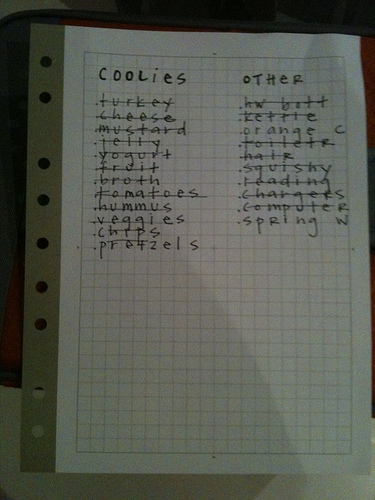 COOLIES
.turkey
.cheese
.mustard
.jelly
.yogurt
.fruit
.broth
.tomatoes
.hummus
.veggies
.chips
.pretzels
OTHER
.hw bott
.kettle
.orange C
.toiletr
.hair
.squishy
.reading
.chargers
.computer
.spring w